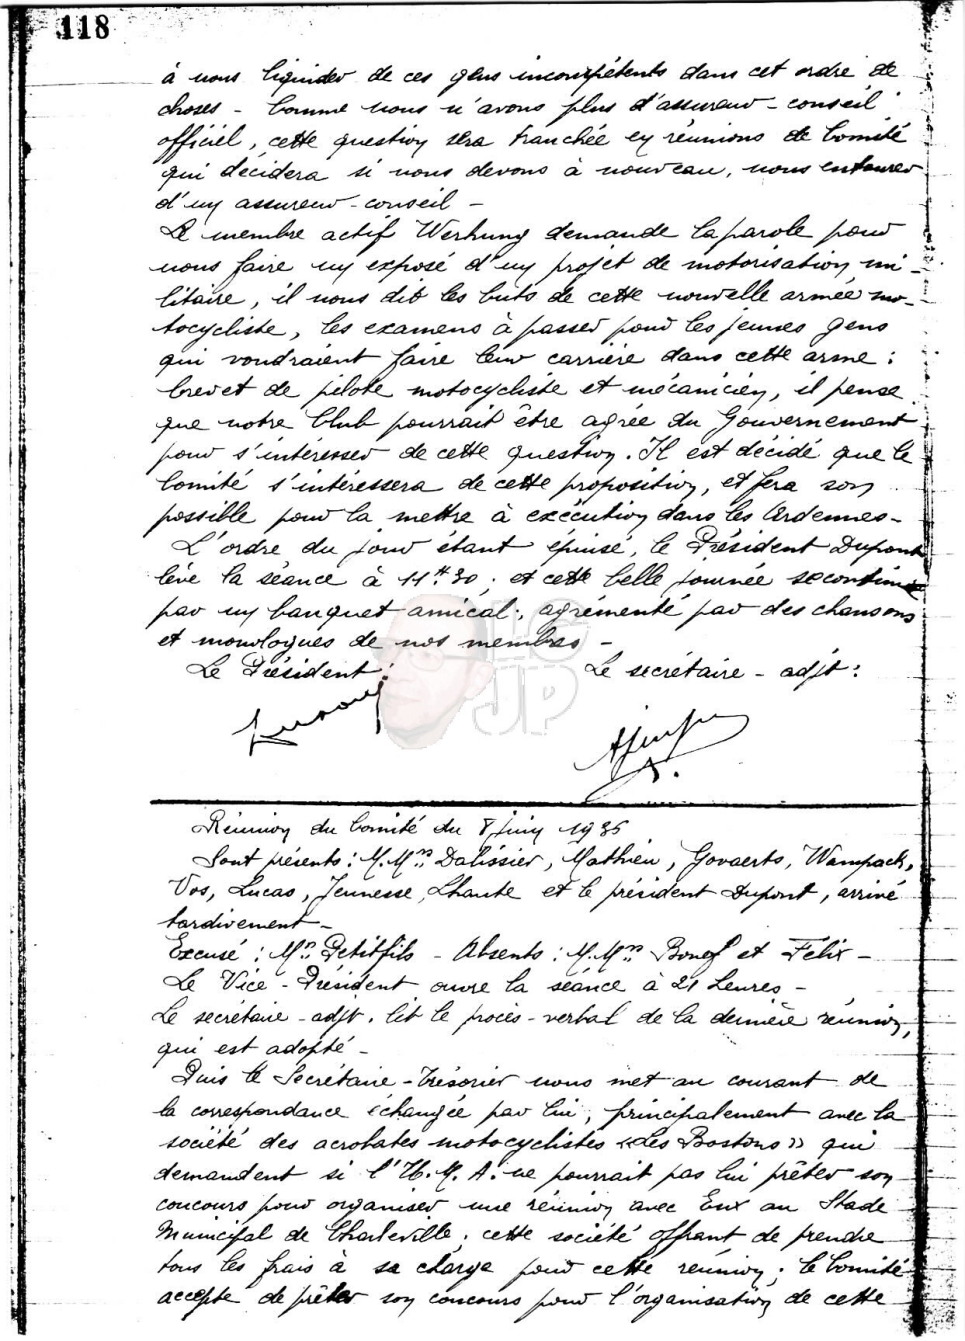 118
à nous liquider de ces gens incompétents dans cet ordre de
choses - Comme nous n'avons plus d'assureur-conseil
officiel, cette question sera tranchée en réunions de Comité
qui décidera si nous devons à nouveau, nous entourer
d'un assureur-conseil -
Le membre actif Werhung demande la parole pour
nous faire un exposé d'un projet de motorisation mi-
litaire, il nous dit les buts de cette nouvelle armée mo-
tocycliste, les examens à passer pour les jeunes gens
qui voudraient faire leur carrière dans cette arme :
brevet de pilote motocycliste et mécanicien, il pense
que notre Club pourrait être agrée du Gouvernement
pour s'intéresser de cette question. Il est décidé que le
Comité s'intéressera de cette proposition, et fera son
possible pour la mettre à exécution dans les Ardennes -
L'ordre du jour étant épuisé, le Président Dupont
lève la séance à 11H30. et cette belle journée se continue
par un banquet amical, agrémenté par des chansons
et monologues de nos membres -
Le Président : Le secrétaire - adjt :
LG
JP
Réunion du Comité du 8 juin 1936
Sont présents : M.Mrs Dalissier, Mathieu, Govaerts, Wampach,
Vos, Lucas, Jeunesse, Lhante et le président Dupont, arrivé
tardivement -
Excusé : Mr Petitfils - Absents : M.Mrs et Félix -
Le Vice-Président ouvre la séance à 21 heures -
Le secrétaire-adjt. lit le procès-verbal de la dernière réunion,
qui est adopté -
Puis le Secrétaire-Trésorier nous met au courant de
la correspondance échangée par lui, principalement avec la
société des acrobates motocyclistes «Les Bostons» qui
demandent si l'U.M.A. ne pourrait pas lui prêter son
concours pour organiser une réunion avec Eux au Stade
Municipal de Charleville, cette société offrant de prendre
tous les frais à sa charge pour cette réunion ; le Comité
accepte de prêter son concours pour l'organisation de cette